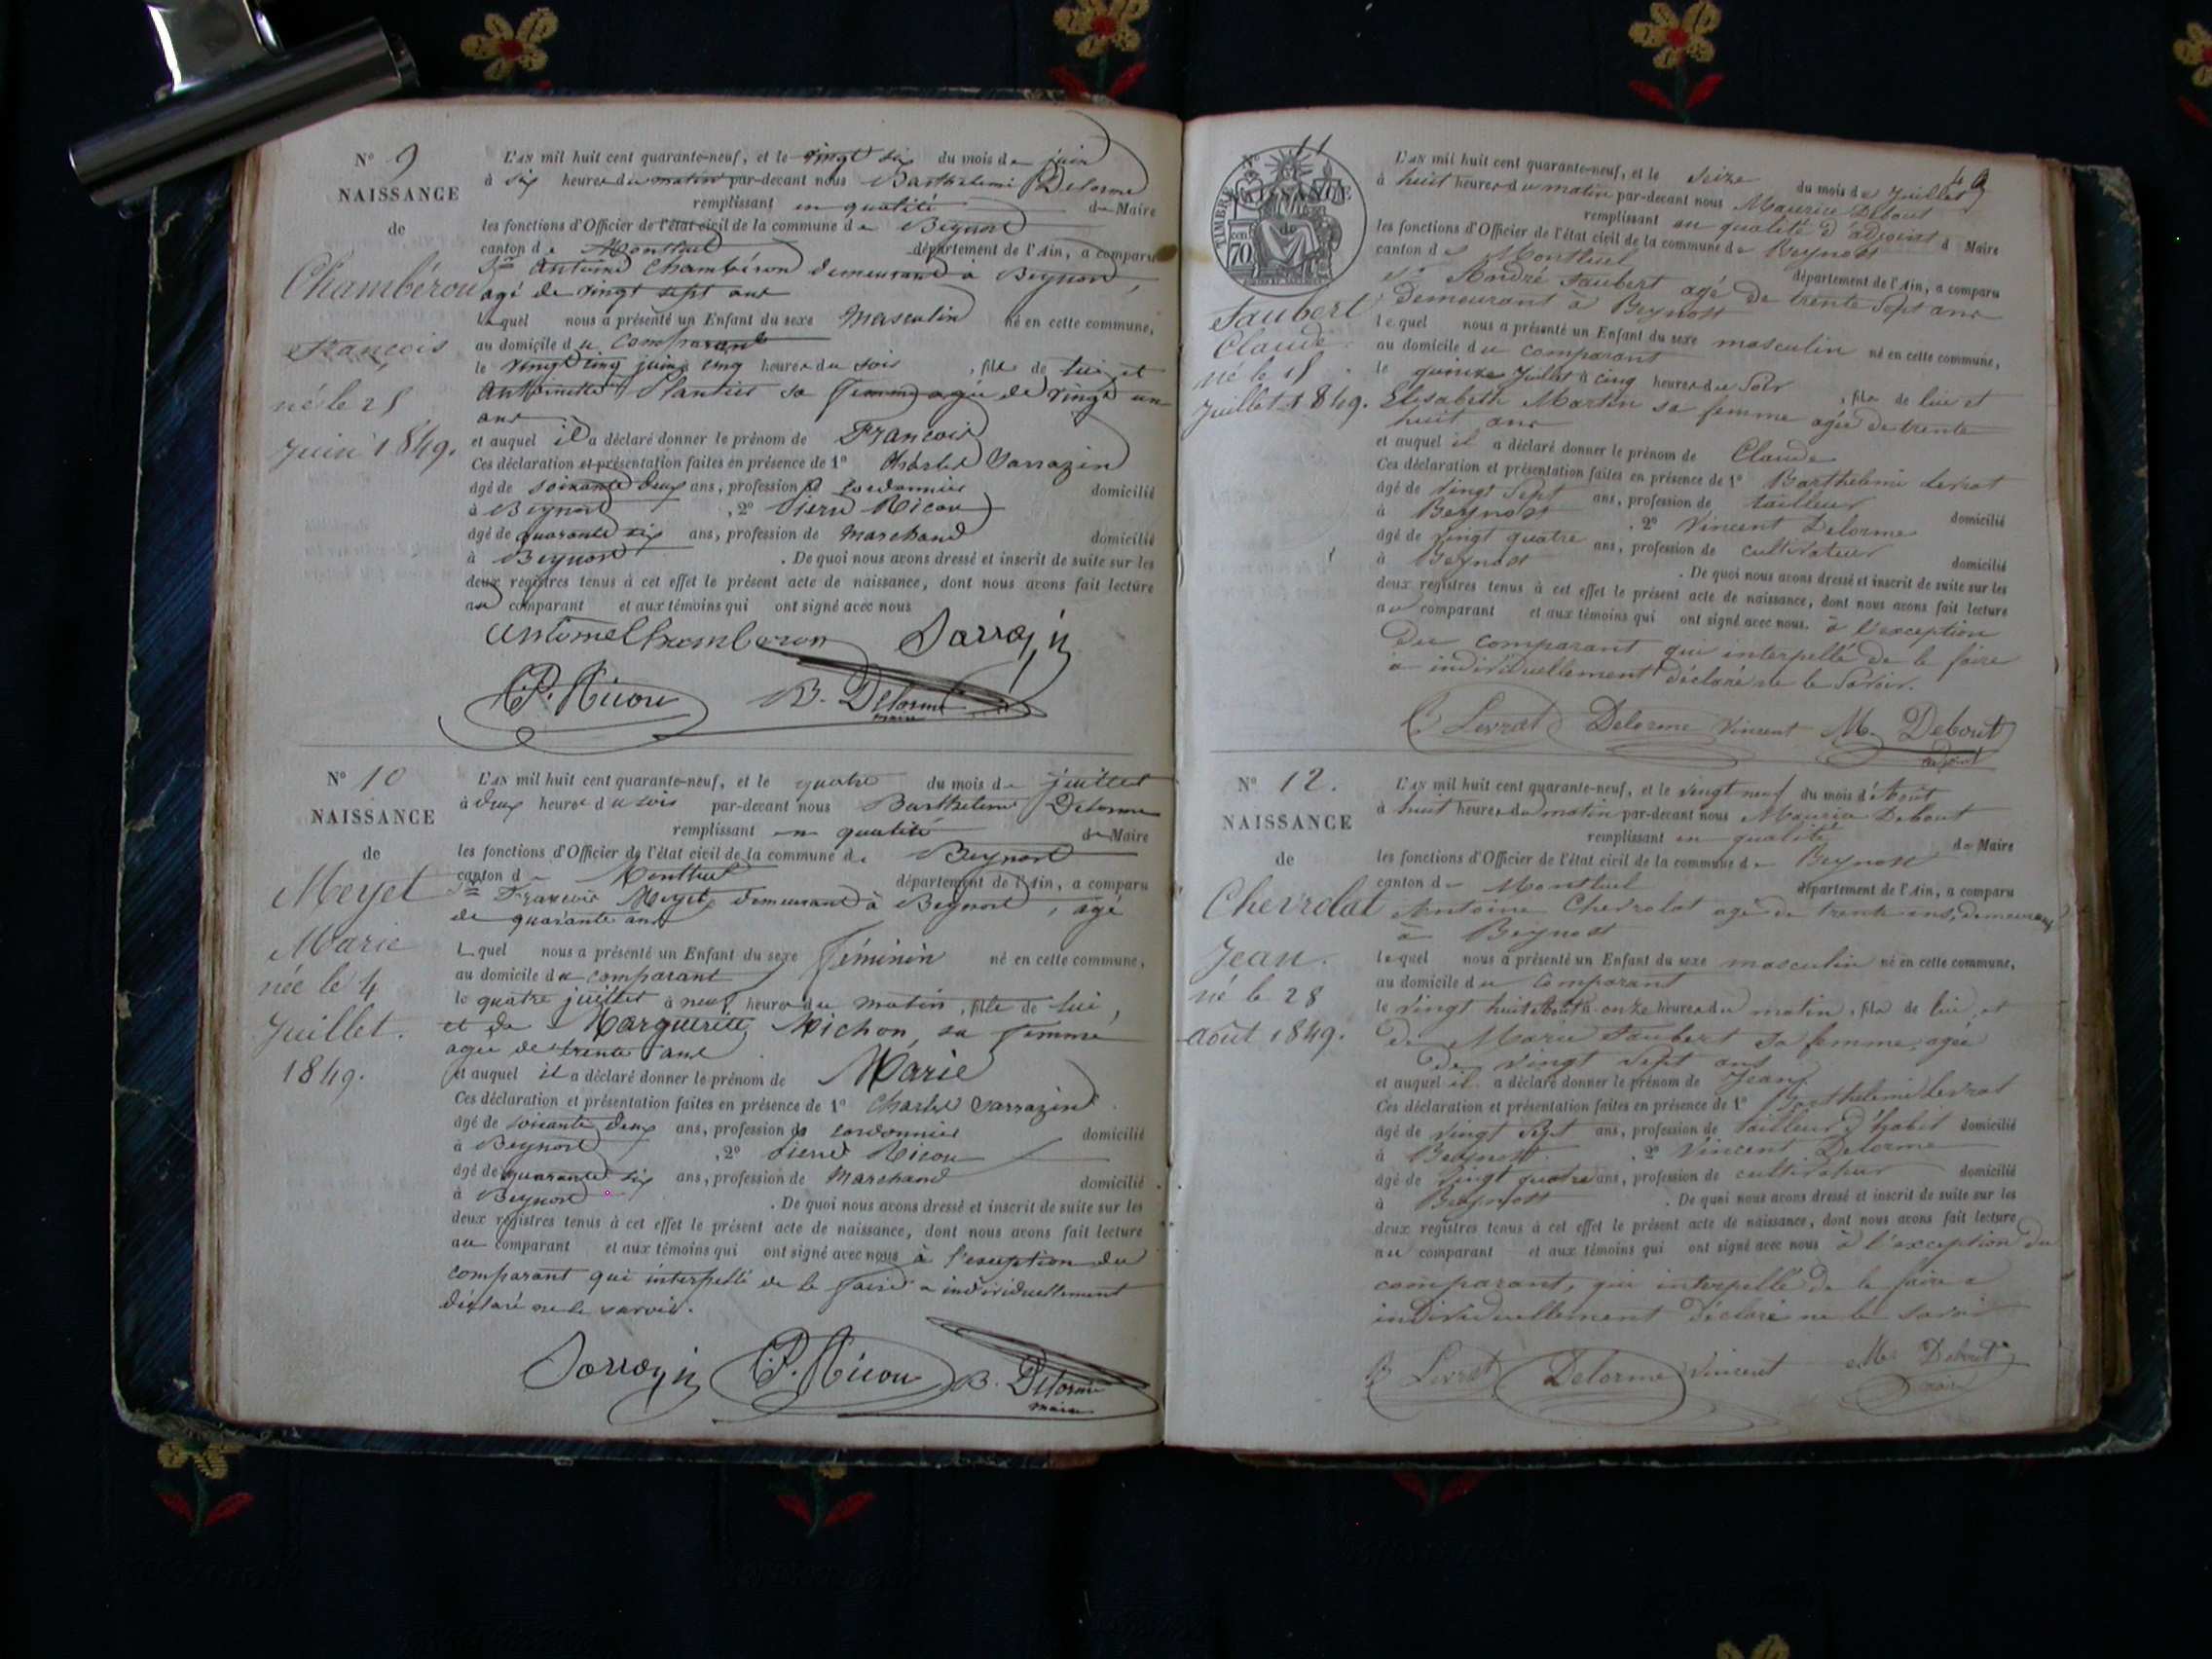 N° 9
NAISSANCE
de
Chambéron
François
né le 25
Juin 1849.
L'AN mil huit cent quarante-neuf, et le vingt six du mois de juin
à six heures du matin par-devant nous Barthelemi Delorme
remplissant en qualité de Maire
les fonctions d'Officier de l'état civil de la commune de Beynost
canton de Montluel département de l'Ain, a comparu
Sr Antoine Chambéron demeurant à Beynost,
agé de vingt sept ans
Lequel nous a présenté un Enfant du sexe Masculin né en cette commune,
au domicile du comparant
le vingt cinq juin à cinq heures du soir, fils de lui et
Antoinette Plantier sa femme agée de vingt un
ans
et auquel il a déclaré donner le prénom de François
Ces déclaration et présentation faites en présence de 1° Charles Sarrazin
âgé de soixante deux ans, profession de cordonnier domicilié
à Beynost, 2° Pierre Nicou
âgé de quarante six ans, profession de Marchand domicilié
à Beynost. De quoi nous avons dressé et inscrit de suite sur les
deux registres tenus à cet effet le présent acte de naissance, dont nous avons fait lecture
au comparant et aux témoins qui ont signé avec nous
Antoine Chamberon Sarrazin
P. Nicou B. Delorme
maire
N° 10
NAISSANCE
de
Meyet
Marie
née le 4
Juillet.
1849.
L'AN mil huit cent quarante-neuf, et le quatre du mois de juillet
à deux heures du soir par-devant nous Barthelemi Delorme
remplissant en qualité de Maire
les fonctions d'Officier de l'état civil de la commune de Beynost
canton de Montluel département de l'Ain, a comparu
Sr François Meyet, demeurant à Beynost, agé
de quarante ans
Lequel nous a présenté un Enfant du sexe féminin né en cette commune,
au domicile du comparant
le quatre juillet à neuf heures du matin, fille de lui,
et de Marguerite Michon, sa femme
agée de trente ans
et auquel il a déclaré donner le prénom de Marie
Ces déclaration et présentation faites en présence de 1° Charles Sarrazin
âgé de soixante deux ans, profession de cordonnier domicilié
à Beynost, 2° Pierre Nicou
âgé de quarante six ans, profession de Marchand domicilié
à Beynost. De quoi nous avons dressé et inscrit de suite sur les
deux registres tenus à cet effet le présent acte de naissance, dont nous avons fait lecture
au comparant et aux témoins qui ont signé avec nous à l'exception du
comparant qui interpellé de le faire a individuellement
déclaré ne le savoir.
Sarrazin P. Nicou B. Delorme
maire
N° 11
NAISSANCE
TIMBRE
70
Jaubert
Claude
né le 15
Juillet 1849.
L'AN mil huit cent quarante-neuf, et le seize du mois de Juillet
à huit heures du matin par-devant nous Maurice Debout
remplissant en qualité d'adjoint d Maire
les fonctions d'Officier de l'état civil de la commune de Beynost
canton de Montluel département de l'Ain, a comparu
Sr André Jaubert agé de trente sept ans
demeurant à Beynost
lequel nous a présenté un Enfant du sexe masculin né en cette commune,
au domicile du comparant
le quinze Juillet à cinq heures du Soir, fils de lui et
Elisabeth Martin sa femme agée de trente
huit ans
et auquel il a déclaré donner le prénom de Claude
Ces déclaration et présentation faites en présence de 1° Barthelemi Levrat
âgé de vingt Sept ans, profession de tailleur domicilié
à Beynost. 2° Vincent Delorme
âgé de vingt quatre ans, profession de cultivateur domicilié
à Beynost. De quoi nous avons dressé et inscrit de suite sur les
deux registres tenus à cet effet le présent acte de naissance, dont nous avons fait lecture
au comparant et aux témoins qui ont signé avec nous. à l'exception
du comparant qui interpellé de le faire
a individuellement déclaré ne le Savoir.
Levrat Delorme Vincent M. Debout
adjoint
N° 12.
NAISSANCE
de
Chevrolat
Jean.
né le 28
août 1849.
L'AN mil huit cent quarante-neuf, et le vingt neuf du mois d'Août
à huit heures du matin par-devant nous Maurice Debout
remplissant en qualité de Maire
les fonctions d'Officier de l'état civil de la commune de Beynost
canton de Montluel département de l'Ain, a comparu
Antoine Chevrolat agé de trente ans, demeurant
à Beynost
lequel nous a présenté un Enfant du sexe masculin né en cette commune,
au domicile du comparant
le vingt huit Août à onze heures du matin, fils de lui et
de Marie Jaubert sa femme, agée
de vingt sept ans
et auquel il a déclaré donner le prénom de Jean
Ces déclaration et présentation faites en présence de 1° Barthelemi Levrat
âgé de vingt Sept ans, profession de tailleur d'habit domicilié
à Beynost. 2° Vincent Delorme
âgé de vingt quatre ans, profession de cultivateur domicilié
à Beynost. De quoi nous avons dressé et inscrit de suite sur les
deux registres tenus à cet effet le présent acte de naissance, dont nous avons fait lecture
au comparant et aux témoins qui ont signé avec nous à l'exception du
comparant, qui interpellé de le faire a
individuellement déclaré ne le savoir
B Levrat Delorme Vincent M. Debout
maire